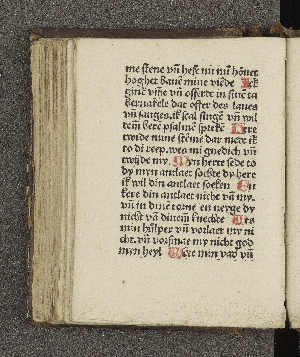 me stene vn̄ heft nu mī hȏuet
hoghet bauē mine viēde Ick
ginc vm̄e vn̄ offerde in sinē ta
bernakele dat offer des laues
vn̄ sanges. ik scal singē vn̄ wil
dem herē psalmē sprekē Here
twide mine stēme dar mede ik
to di reep. wes mi gnedich vn̄
twyde my. Myn herte sede to
dy myn antlaet sochte dy here
ik wil din antlaet soeken En
kere din antlaet nicht vā my.
vn̄ in dinē torne en neyge dy
nicht vā dinem knechte Wes
min hulper vn̄ vorlaet my ni
cht. vn̄ vorsmae my nicht god
myn heyl Wente min vad vn̄